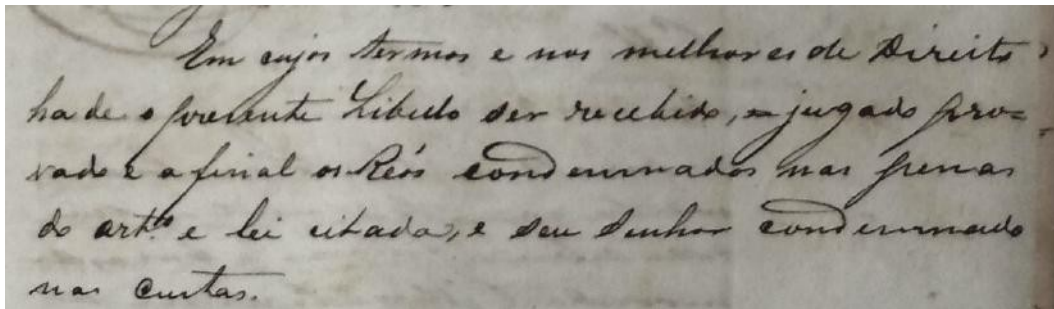 Em cujos termos e nos melhores de Direito
ha de o presente Libello ser recebido, e jugado pro=
vado e a final os Réos condemnados nas penas
do art.º e lei citada, e seu Senhor condemnado
nas custas.